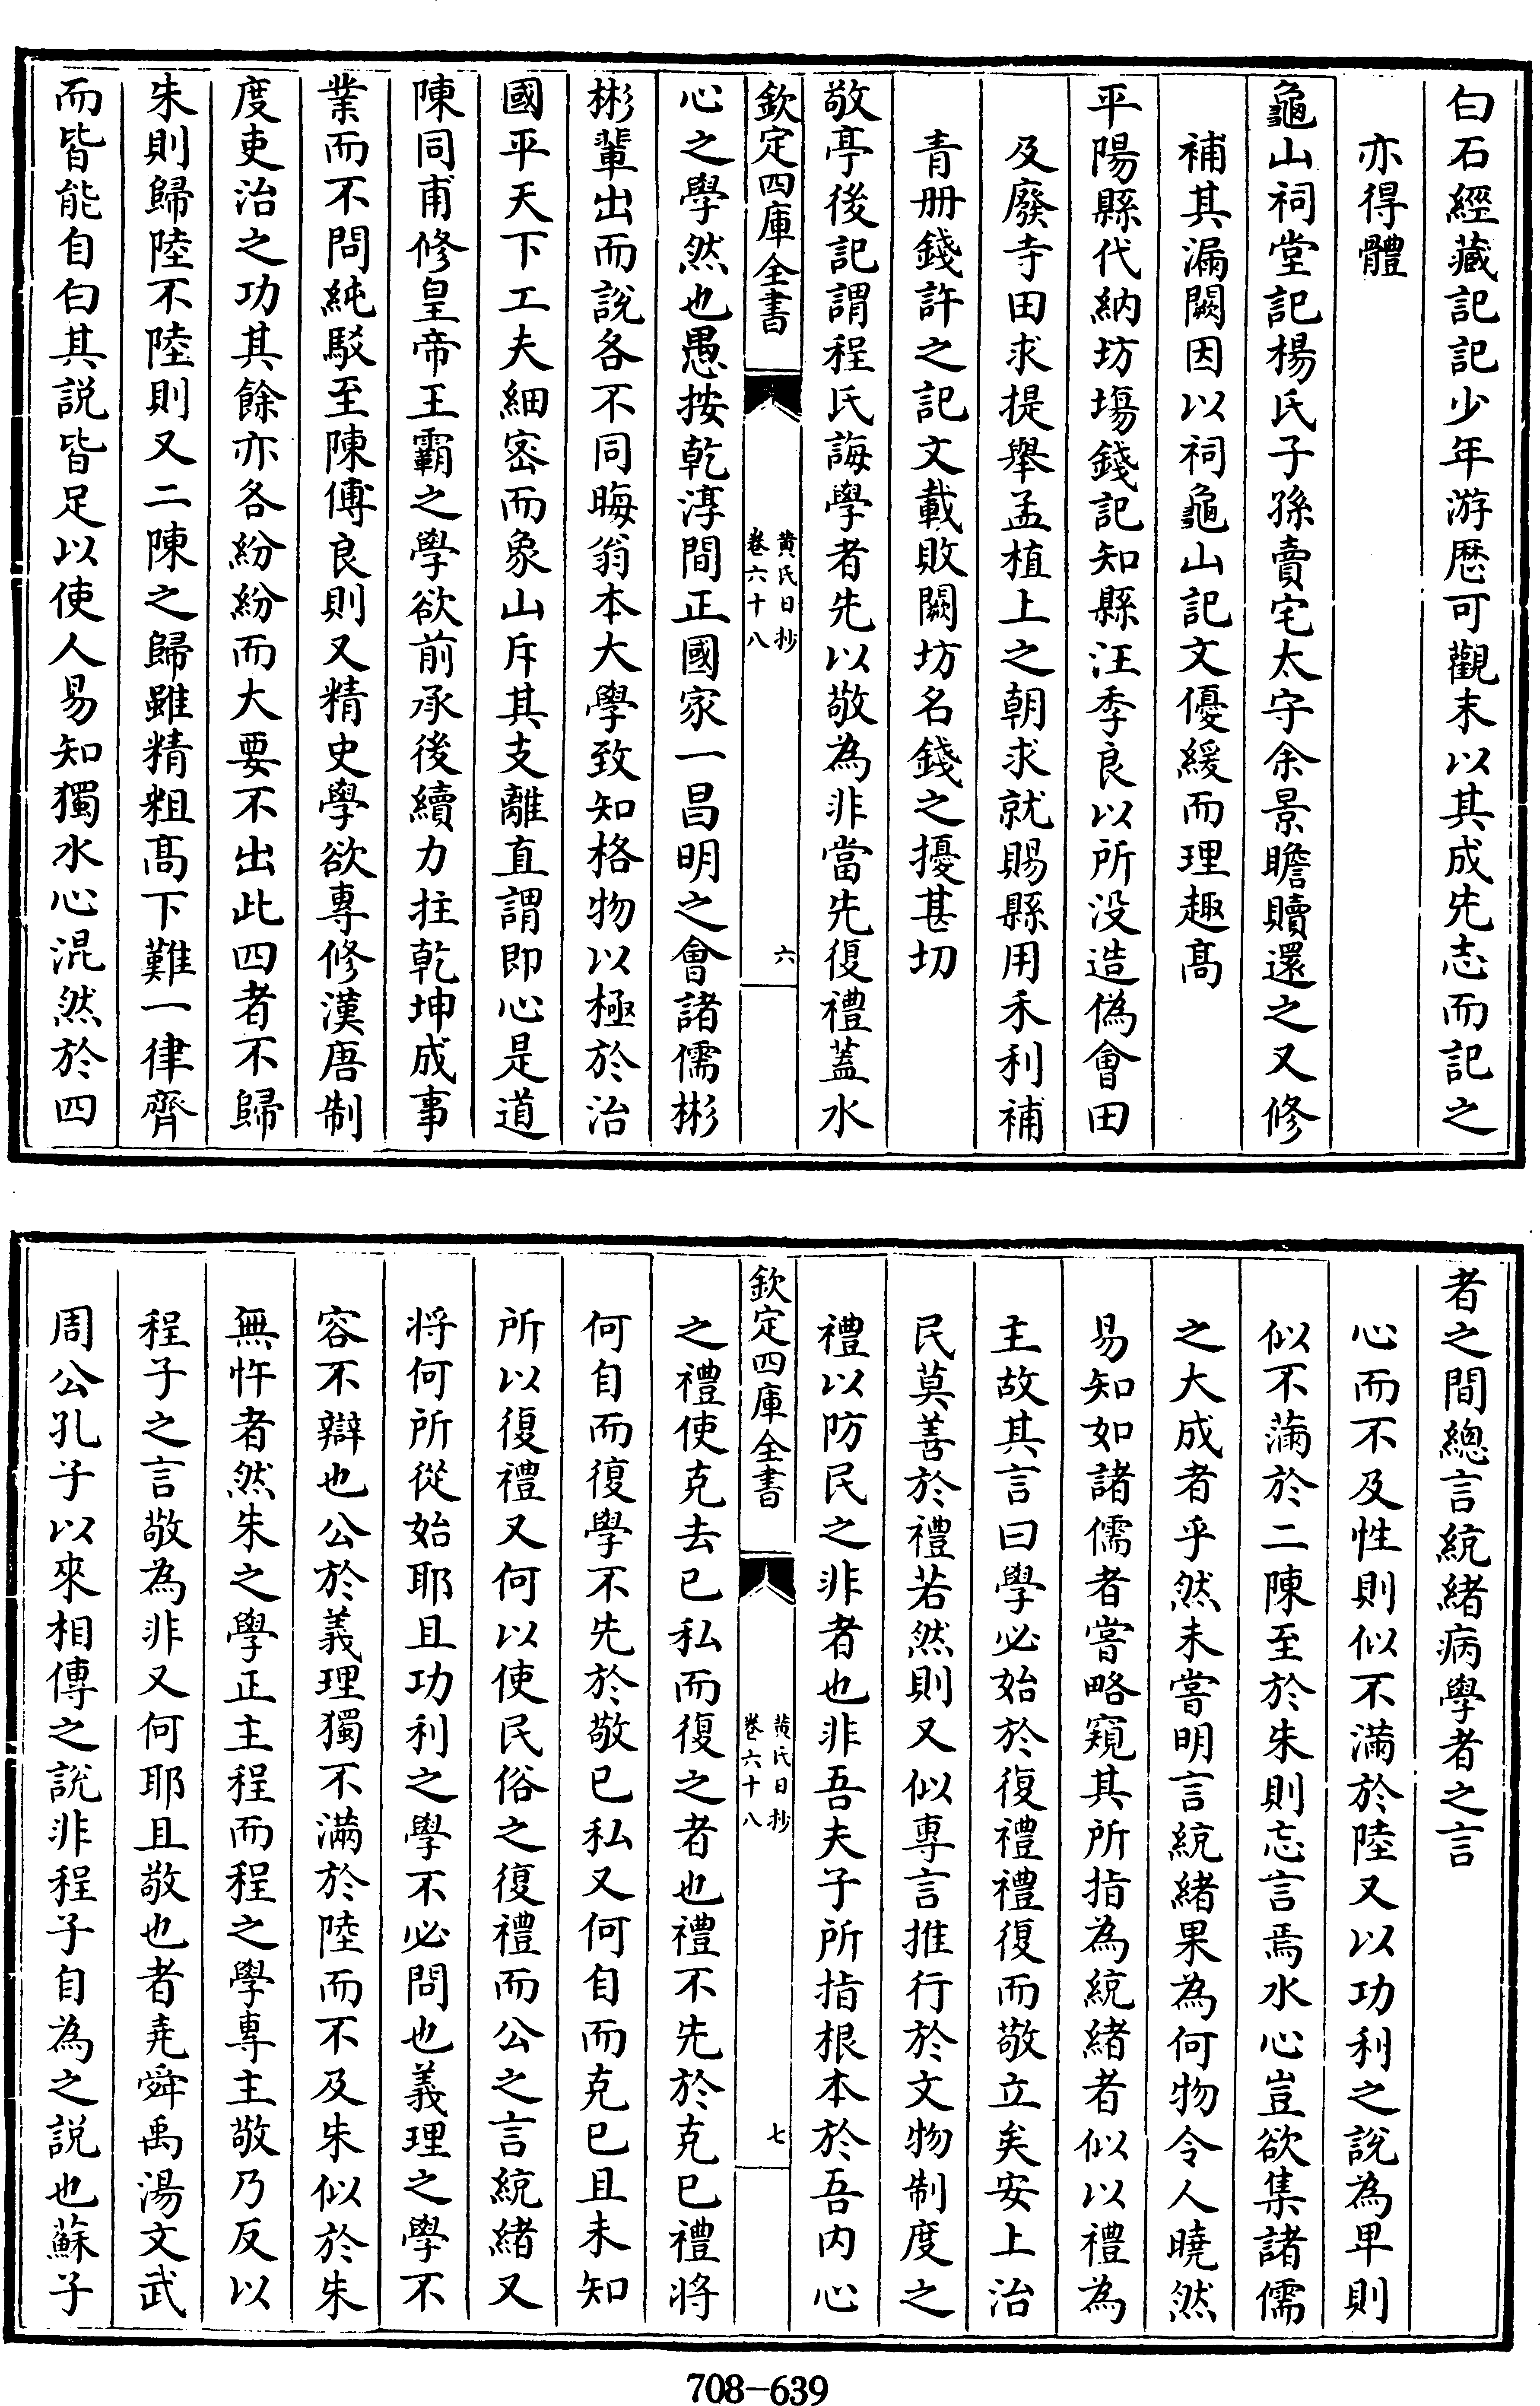 白石經藏記記少年游歴可觀末以其成先志而記之
亦得體
龜山祠堂記楊氏子孫賣宅太守余景瞻贖還之又修
補其漏闕因以祠龜山記文優緩而理趣髙
平陽縣代納坊塲錢記知縣汪季良以所没造偽㑹田
及廢寺田求提舉孟植上之朝求就賜縣用禾利補
青册錢許之記文載敗闕坊名錢之擾甚切
敬亭後記謂程氏誨學者先以敬為非當先復禮蓋水
欽定四庫全書
黄氏日抄
卷六十八
六
心之學然也愚按乾淳間正國家一昌明之㑹諸儒彬
彬輩出而說各不同晦翁本大學致知格物以極於治
國平天下工夫細密而象山斥其支離直謂即心是道
陳同甫修皇帝王霸之學欲前承後續力拄乾坤成事
業而不問純駁至陳傅良則又精史學欲專修漢唐制
度吏治之功其餘亦各紛紛而大要不出此四者不歸
朱則歸陸不陸則又二陳之歸雖精粗髙下難一律齊
而皆能自白其説皆足以使人易知獨水心混然於四
者之間總言統緒病學者之言
心而不及性則似不滿於陸又以功利之說為卑則
似不滿於二陳至於朱則忘言焉水心豈欲集諸儒
之大成者乎然未嘗明言統緒果為何物令人曉然
易知如諸儒者嘗略窺其所指為統緒者似以禮為
主故其言曰學必始於復禮禮復而敬立矣安上治
民莫善於禮若然則又似專言推行於文物制度之
禮以防民之非者也非吾夫子所指根本於吾内心
欽定四庫全書
黄氏日抄
卷六十八
七
之禮使克去已私而復之者也禮不先於克已禮將
何自而復學不先於敬已私又何自而克已且未知
所以復禮又何以使民俗之復禮而公之言統緒又
将何所從始耶且功利之學不必問也義理之學不
容不辯也公於義理獨不滿於陸而不及朱似於朱
無忤者然朱之學正主程而程之學專主敬乃反以
程子之言敬為非又何耶且敬也者堯舜禹湯文武
周公孔子以來相傳之說非程子自為之説也蘇子
708-639